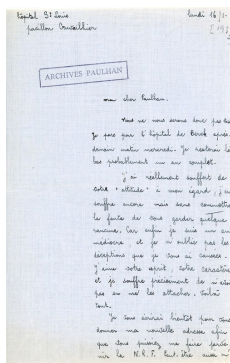 hôpital St Louis lundi 16/1
pavillon Cornillier
ARCHIVES PAULHAN
mon cher Paulhan.
nous ne nous serons donc pas
Je pars pour l'hôpital de Berck après
demain matin mercredi. Je resterai là
bas probablement un an complet.
j'ai réellement souffert de
votre "attitude" à mon égard, j'en
souffre encore mais sans commettre
la faute de vous garder quelque
rancune. Car enfin je suis un
médiocre et je n'oublie pas les
déceptions que je vous ai causées.
J'aime votre esprit, votre caractère
et je souffre précisément de n'avoir
pas su me les attacher. Voilà
tout.
Je vous écrirai bientôt pour vous
donner ma nouvelle adresse afin
que vous puissiez me faire
la N.R.F. aussi